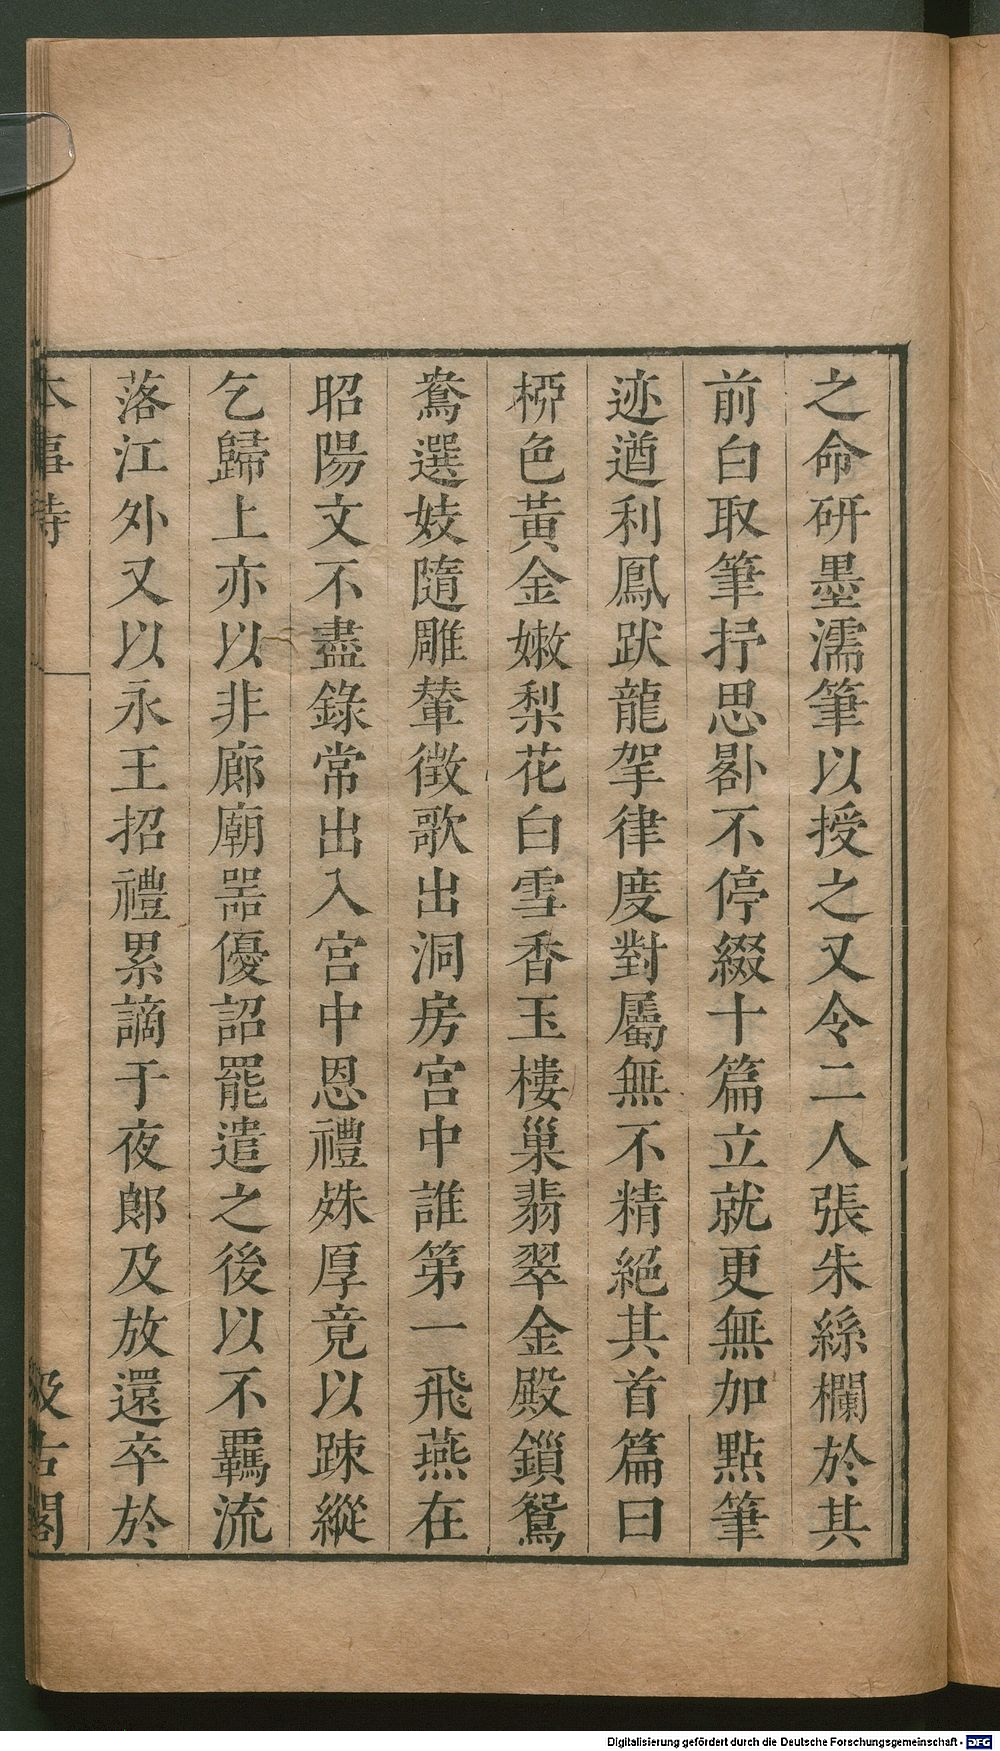 之命研墨濡筆以授之又令二人張朱絲欄於其
前白取筆抒思畧不停綴十篇立就更無加點筆
迹遒利鳳跃龍拏律度對屬無不精絕其首篇曰
栁色黃金嫩梨花白雪香玉樓巢翡翠金殿鎖鴛
鴦選妓隨雕輦徵歌出洞房宮中誰第一飛燕在
昭陽文不盡錄常出入宮中恩禮殊厚竟以踈縱
乞歸上亦以非廊廟噐優詔罷遣之後以不羈流
落江外又以永王招禮累謫于夜郎及放還卒於
本事詩
汲古閣
Digitalisierung gefördert durch die Deutsche Forschungsgemeinschaft - DFG